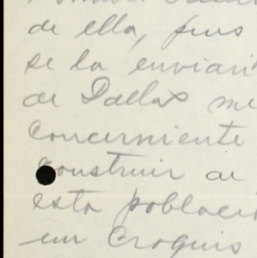 de ella, pues
se la enviar
de Dallas me
Concerniente
Construir
esta poblaci
un Croquis